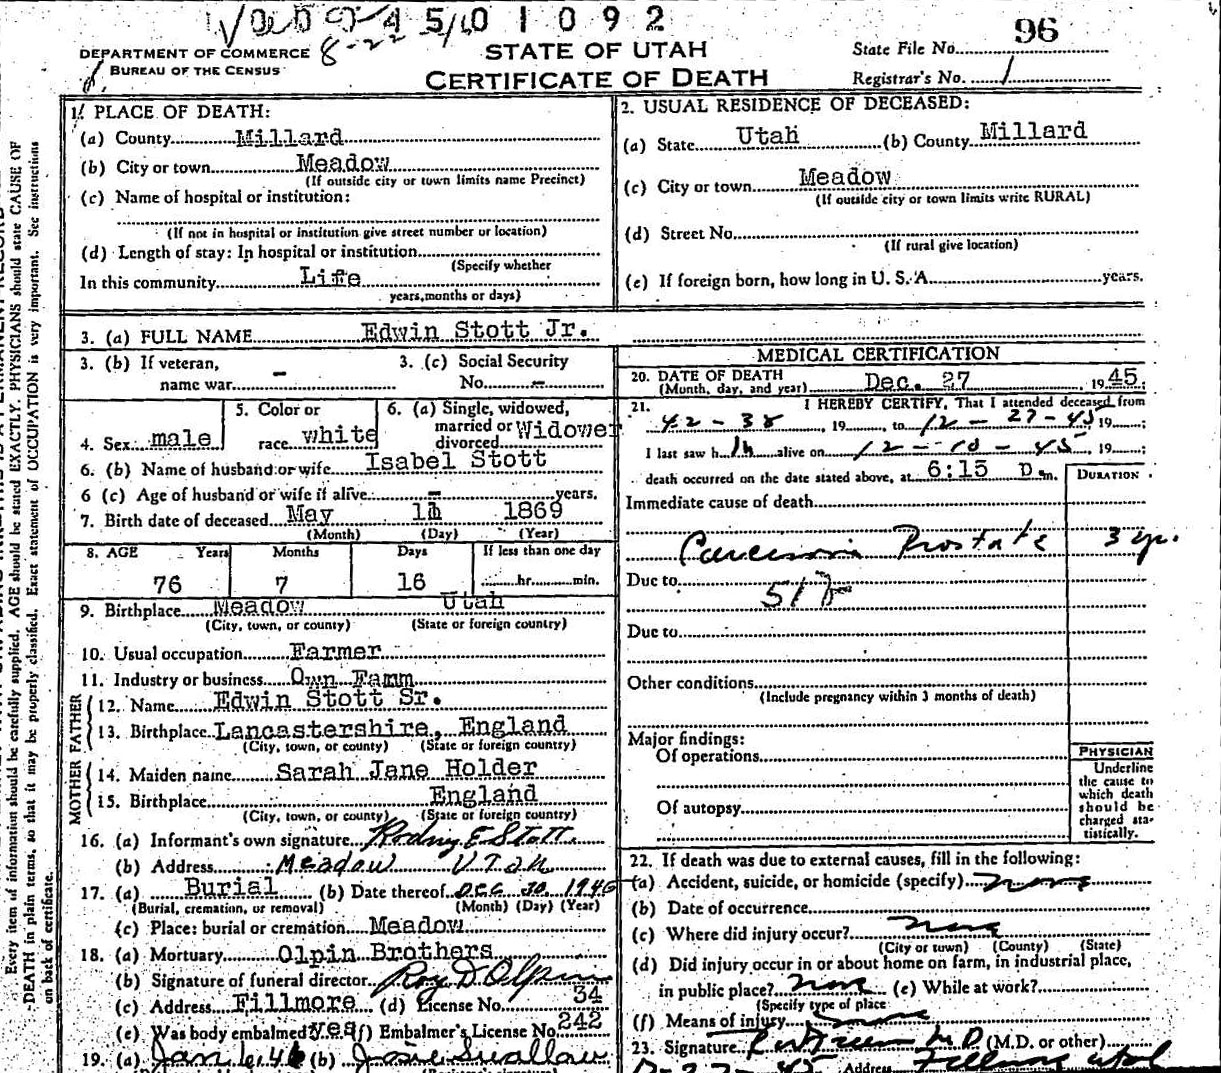 4 5 0 1 0 9 2
8-22
DEPARTMENT OF COMMERCE
BUREAU OF THE CENSUS
STATE OF UTAH
CERTIFICATE OF DEATH
State File No. 96
Registrar's No. 1
1. PLACE OF DEATH:
(a) County Millard
(b) City or town Meadow
(If outside city or town limits name Precinct)
(c) Name of hospital or institution:
(If not in hospital or institution give street number or location)
(d) Length of stay: In hospital or institution
(Specify whether
In this community Life
years, months or days)
2. USUAL RESIDENCE OF DECEASED:
(a) State Utah (b) County Millard
(c) City or town Meadow
(If outside city or town limits write RURAL)
(d) Street No.
(If rural give location)
(e) If foreign born, how long in U. S. A. years.
3. (a) FULL NAME Edwin Stott Jr.
3. (b) If veteran,
name war -
3. (c) Social Security
No. -
4. Sex male
5. Color or
race white
6. (a) Single, widowed,
married or
divorced Widower
6. (b) Name of husband or wife Isabel Stott
6 (c) Age of husband or wife if alive - years.
7. Birth date of deceased May 11 1869
(Month) (Day) (Year)
8. AGE Years Months Days If less than one day
76 7 16 hr. min.
9. Birthplace Meadow Utah
(City, town, or county) (State or foreign country)
10. Usual occupation Farmer
11. Industry or business Own Famm
FATHER
12. Name Edwin Stott Sr.
13. Birthplace Lancastershire, England
(City, town, or county) (State or foreign country)
MOTHER
14. Maiden name Sarah Jane Holder
15. Birthplace England
(City, town, or county) (State or foreign country)
16. (a) Informant's own signature Rodney E Stott
(b) Address Meadow Utah
17. (a) Burial (b) Date thereof Dec 30 1945
(Burial, cremation, or removal) (Month) (Day) (Year)
(c) Place: burial or cremation Meadow
18. (a) Mortuary Olpin Brothers
(b) Signature of funeral director Roy D. Olpin
(c) Address Fillmore (d) License No. 34
(e) Was body embalmed? yes (f) Embalmer's License No. 242
19. (a) Jan 6 46 (b) Josie Swallow
MEDICAL CERTIFICATION
20. DATE OF DEATH
(Month, day, and year) Dec. 27 1945;
21. I HEREBY CERTIFY, That I attended deceased from
, 19 , to 12-27-45 19 ;
I last saw h alive on 12-10-45, 19 ;
death occurred on the date stated above, at 6:15 m.
DURATION
Immediate cause of death
Carcinoma Prostate 3 yr.
Due to
Due to
Other conditions
(Include pregnancy within 3 months of death)
Major findings:
Of operations
Of autopsy
PHYSICIAN
Underline
the cause to
which death
should be
charged sta-
tistically.
22. If death was due to external causes, fill in the following:
(a) Accident, suicide, or homicide (specify) none
(b) Date of occurrence
(c) Where did injury occur? none
(City or town) (County) (State)
(d) Did injury occur in or about home on farm, in industrial place,
in public place? none (e) While at work?
(Specify type of place
(f) Means of injury none
23. Signature M D (M.D. or other)
Address Fillmore Utah
Every item of information should be carefully supplied. AGE should be stated EXACTLY. PHYSICIANS should state CAUSE OF
DEATH in plain terms, so that it may be properly classified. Exact statement of OCCUPATION is very important. See instructions
on back of certificate.